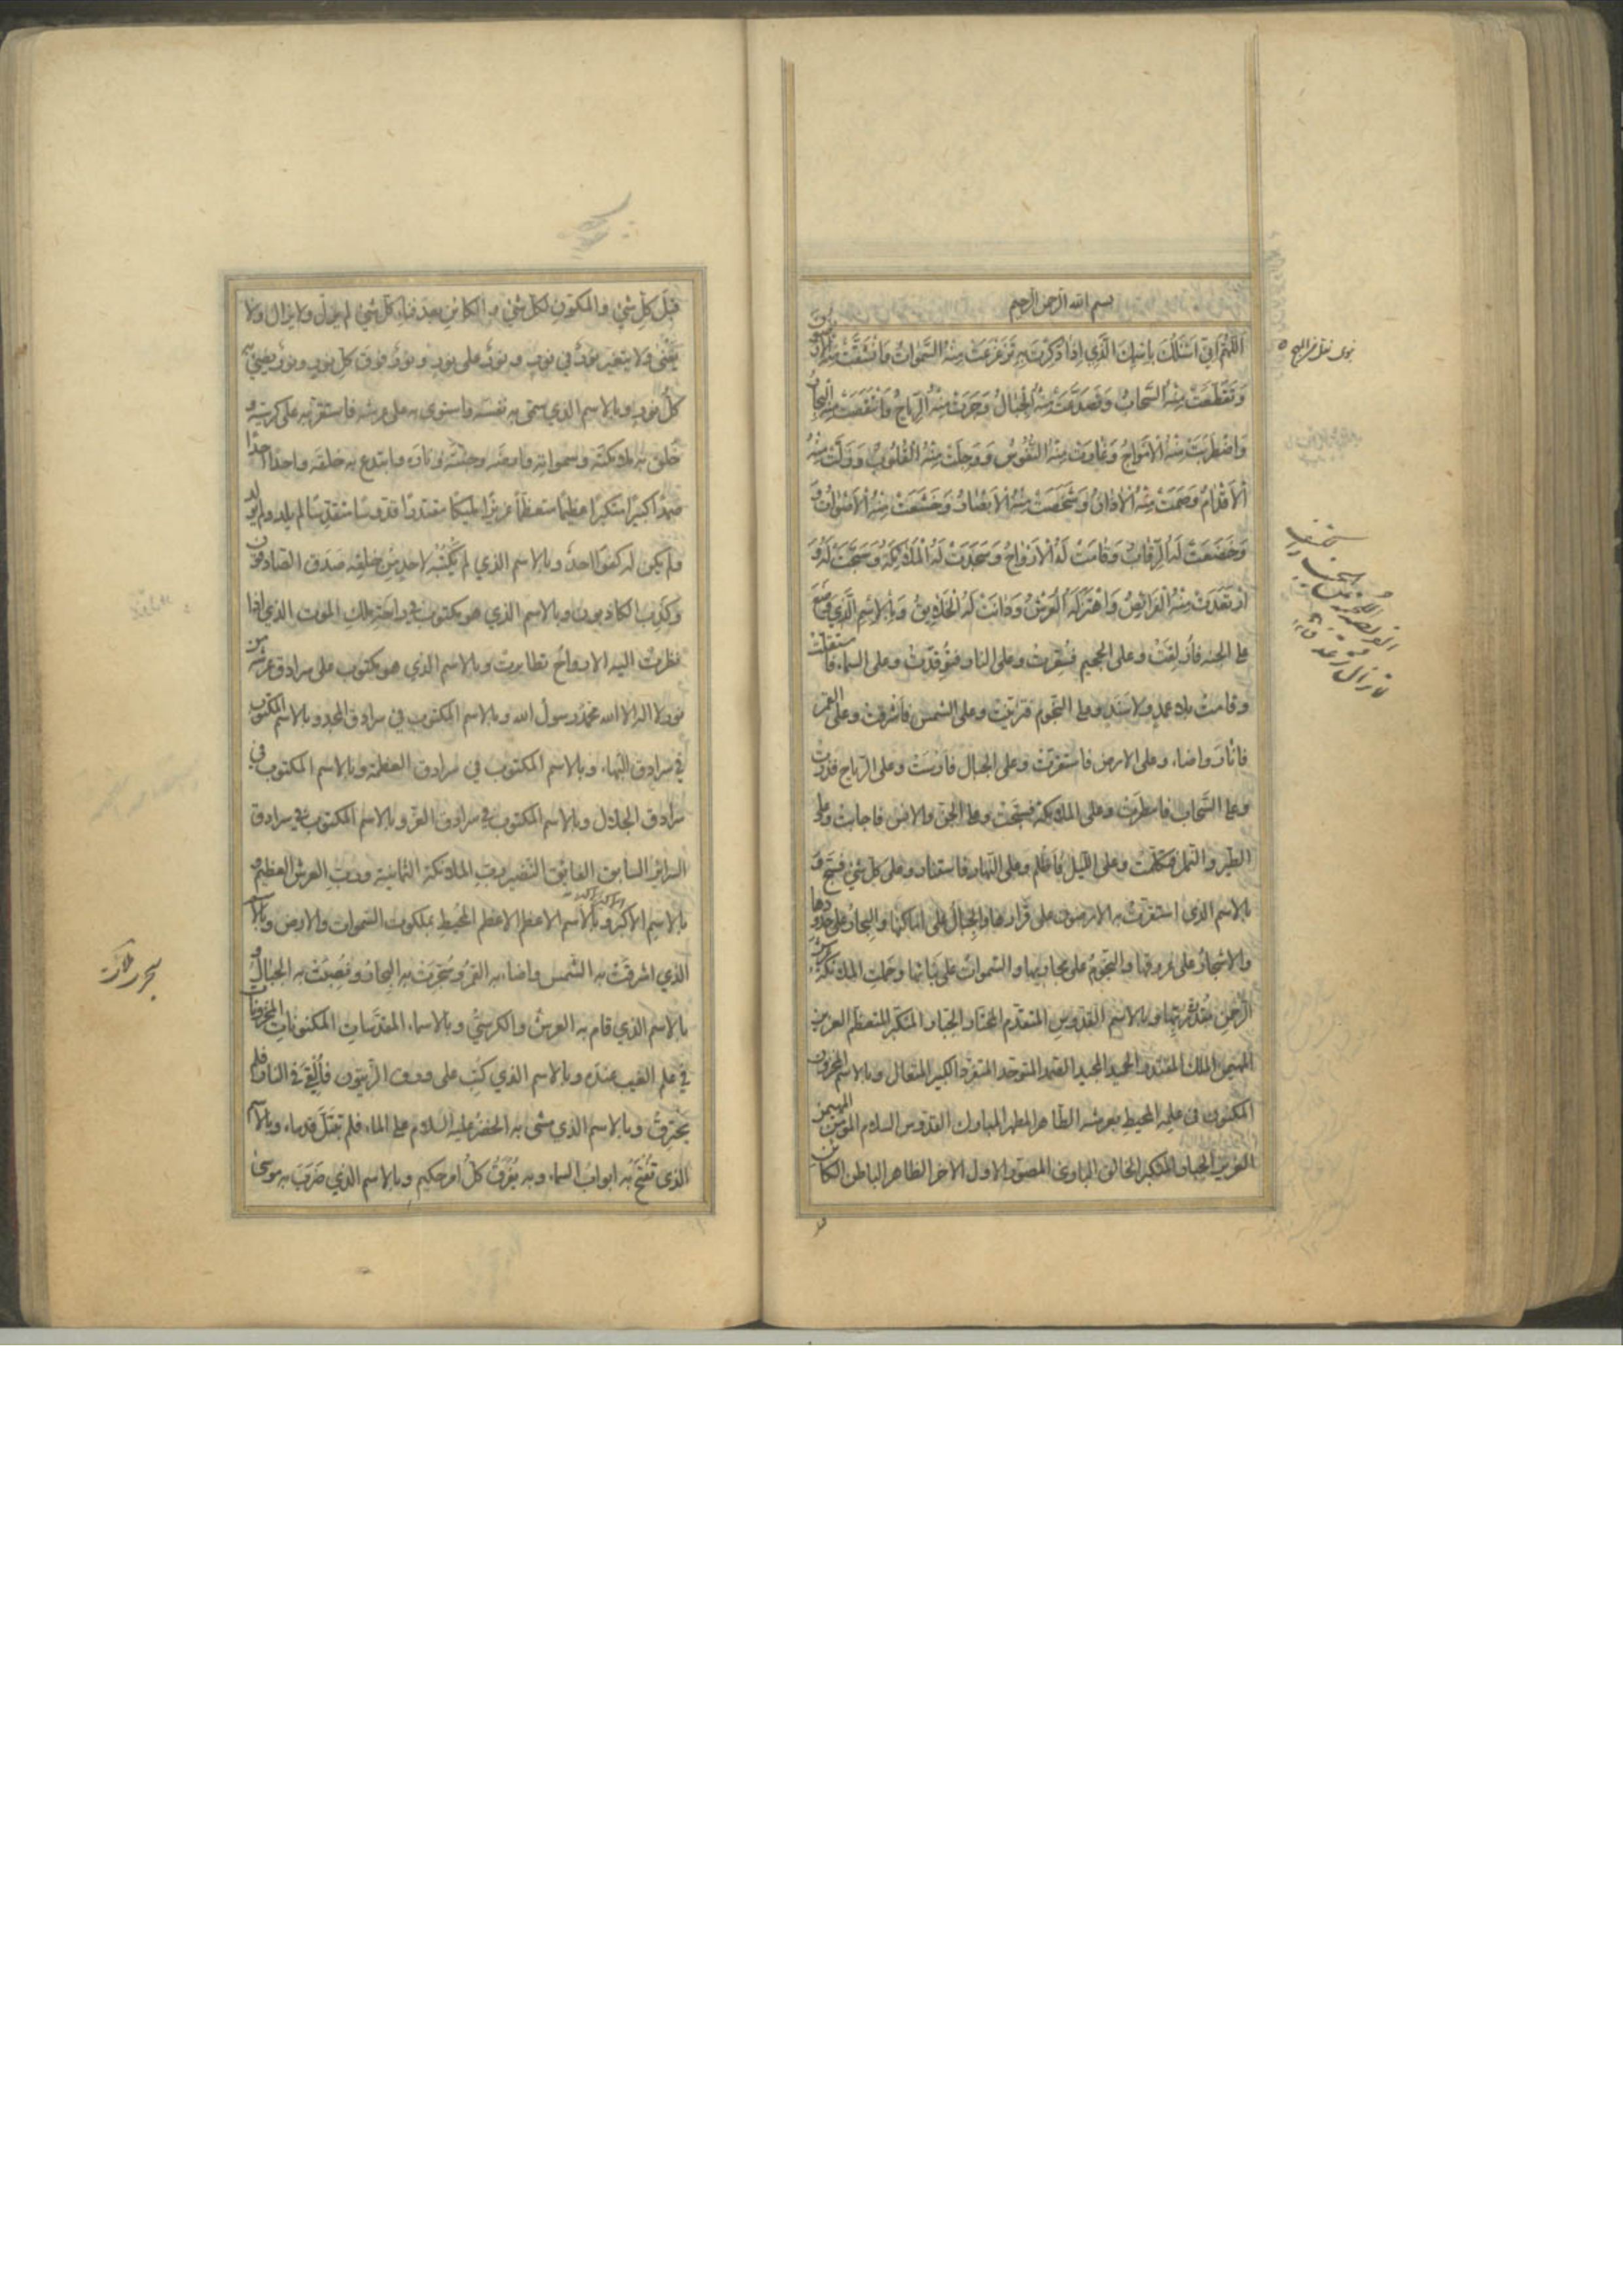 بسم الله الرحمن الرحیم
اَللّٰهُمَّ اِنّی اَسْئَلُكَ بِاسْمِكَ الَّذی اِذا ذُكِرْتَ بِهِ تَزَعْزَعَتْ مِنْهُ السَّمٰواتُ وَانْشَقَّتْ مِنْهُ الْاَرَضُونَ
وَتَقَطَّعَتْ مِنْهُ السَّحابُ وَتَصَدَّعَتْ مِنْهُ الْجِبالُ وَجَرَتْ مِنْهُ الرِّیاحُ وَانْتَقَصَتْ مِنْهُ الْبِحارُ
وَاضْطَرَبَتْ مِنْهُ الْاَمْواجُ وَغارَتْ مِنْهُ النُّفُوسُ وَوَجِلَتْ مِنْهُ الْقُلُوبُ وَزَلَّتْ مِنْهُ
الْاَقْدامُ وَصَمَّتْ مِنْهُ الْاٰذانُ وَشَخَصَتْ مِنْهُ الْاَبْصارُ وَخَشَعَتْ مِنْهُ الْاَصْواتُ وَ
وَخَضَعَتْ لَهُ الرِّقابُ وَقامَتْ لَهُ الْاَرْواحُ وَسَجَدَتْ لَهُ الْمَلائِكَةُ وَسَبَّحَتْ لَهُ وَ
ارْتَعَدَتْ مِنْهُ الْفَرائِصُ وَاهْتَزَّ لَهُ الْعَرْشُ وَدانَتْ لَهُ الْخَلائِقُ وَبِالْاِسْمِ الَّذی وُضِعَ
علی الجنه فازلفت و علی الجحیم فسعرت و علی النار فتوقدت و علی السماء فاستقلت
و قامت بلا عمد ولا سند و علی النجوم فتزینت و علی الشمس فاشرقت و علی القمر
فانار و اضاء و علی الارض فاستقرت و علی الجبال فارست و علی الریاح فذرت
و علی السحاب فامطرت و علی الملائكة فسبحت و علی الجن والانس فاجابت و علی
الطیر و النمل فتكلمت و علی اللیل فاظلم و علی النهار فاستنار و علی كل شئ فسبح و
بالاسم الذی استقرت به الارضون علی قرارها والجبال علی اماكنها والبحار علی حدودها
والاشجار علی عروقها والنجوم علی مجاریها والسموات علی بنائها وحملت الملائكة عرش
الرحمن بقدرة ربها و بالاسم القدوس المتقدم المختار الجبار المتكبر المتعظم العزیز
المهیمن الملك المقتدر الحمید المجید الصمد المتوحد المتفرد الكبیر المتعال و بالاسم المخزون
المكنون فی علمه المحیط بعرشه الطاهر المطهر المبارك القدوس السلام المؤمن المهیمن
العزیز الجبار المتكبر الخالق الباری المصور الاول الاخر الظاهر الباطن الكائن
قبل كل شئ والمكون لكل شئ والكائن بعد فناء كل شئ لم یزل ولا یزال ولا
یفنی ولا یتغیر نور فی نور و نور علی نور و نور فوق كل نور و نور یضیئ به
كل نور و بالاسم الذی سمی به نفسه فاستوی به علی عرشه فاستقر به علی كرسیه و
خلق به ملائكته وسمواته وارضه وجنته وناره وابتدع به خلقه واحدا احدا
صمدا كبیرا متكبرا عظیما متعظما عزیزا ملیكا مقتدرا قدوسا متقدسا لم یلد ولم یولد
ولم یكن له كفوا احد و بالاسم الذی لم یكتبه لاحد من خلقه صدق الصادقون
وكذب الكاذبون و بالاسم الذی هو مكتوب فی راحة ملك الموت الذی اذا
نظرت الیه الارواح تطایرت و بالاسم الذی هو مكتوب علی سرادق عرشه من
نور لا اله الا الله محمد رسول الله و بالاسم المكتوب فی سرادق المجد و بالاسم المكتوب
فی سرادق البهاء و بالاسم المكتوب فی سرادق العظمة و بالاسم المكتوب فی
سرادق الجلال و بالاسم المكتوب فی سرادق العز و بالاسم المكتوب فی سرادق
السرائر السابق الفائق النضیر رب الملائكة الثمانیة و رب العرش العظیم و
بالاسم الاكبر و بالاسم الاعظم الاعظم المحیط بملكوت السموات والارض و بالاسم
الذی اشرقت به الشمس واضاء به القمر وسجرت به البحار ونصبت به الجبال و
بالاسم الذی قام به العرش والكرسی و بالاسماء المقدسات المكنونات المخزونات
فی علم الغیب عنده و بالاسم الذی كتب علی ورق الزیتون فالقی فی النار فلم
یحترق و بالاسم الذی مشی به الخضر علیه السلام علی الماء فلم تبتل قدماه و بالاسم
الذی تفتح به ابواب السماء و به یفرق كل امر حكیم و بالاسم الذی ضرب به موسی